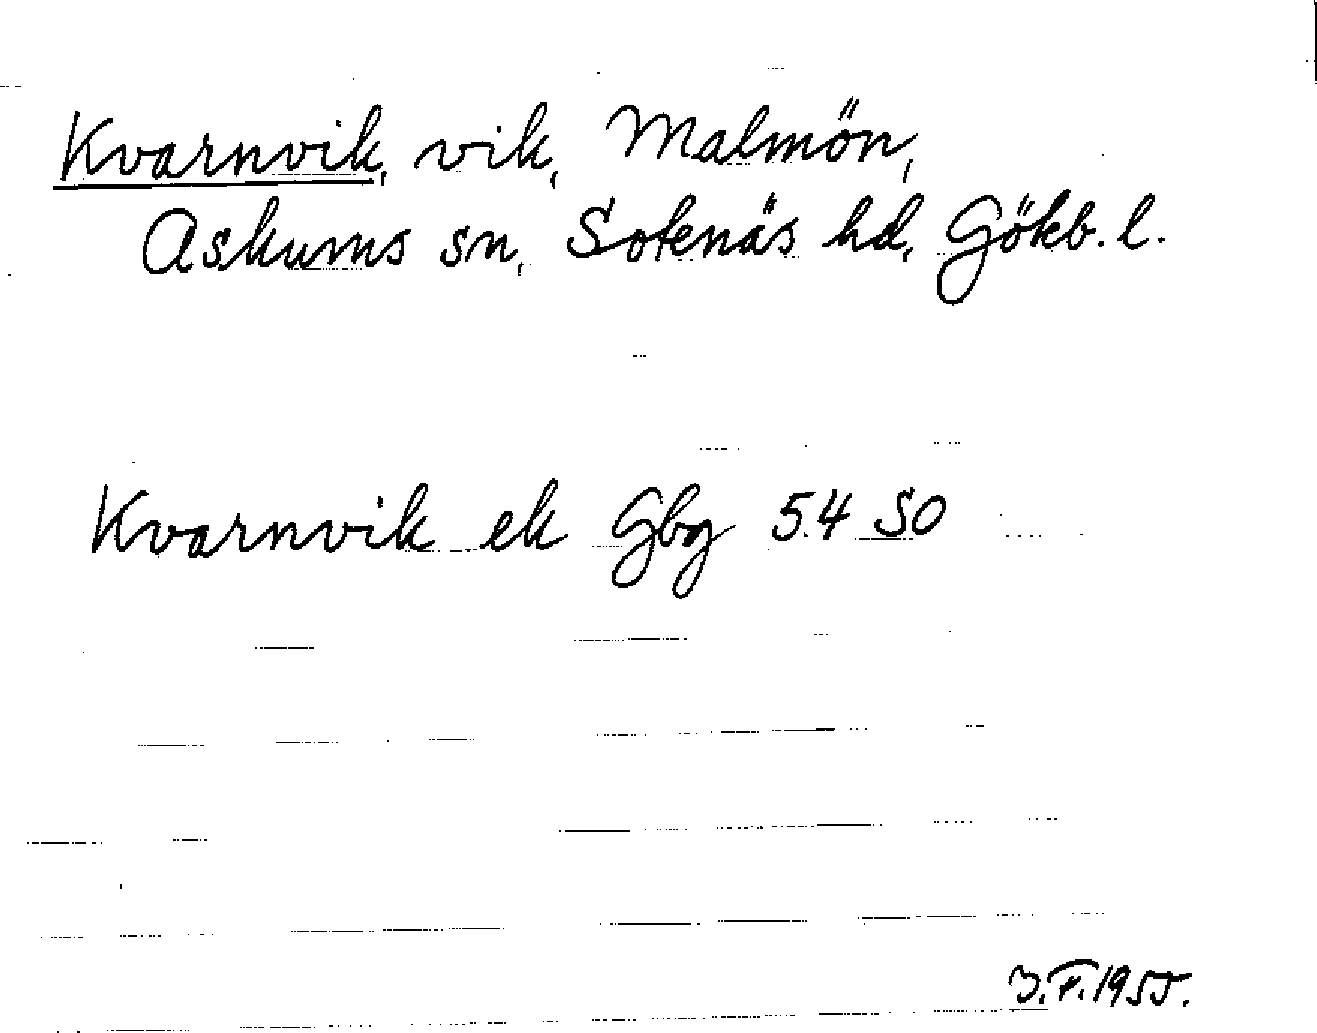 Kvarnvik, vik, Malmön,
Askums sn, Sotenäs hd, Gökb. l.
Kvarnvik ek Gbg 54 SO
J.F. 1955.